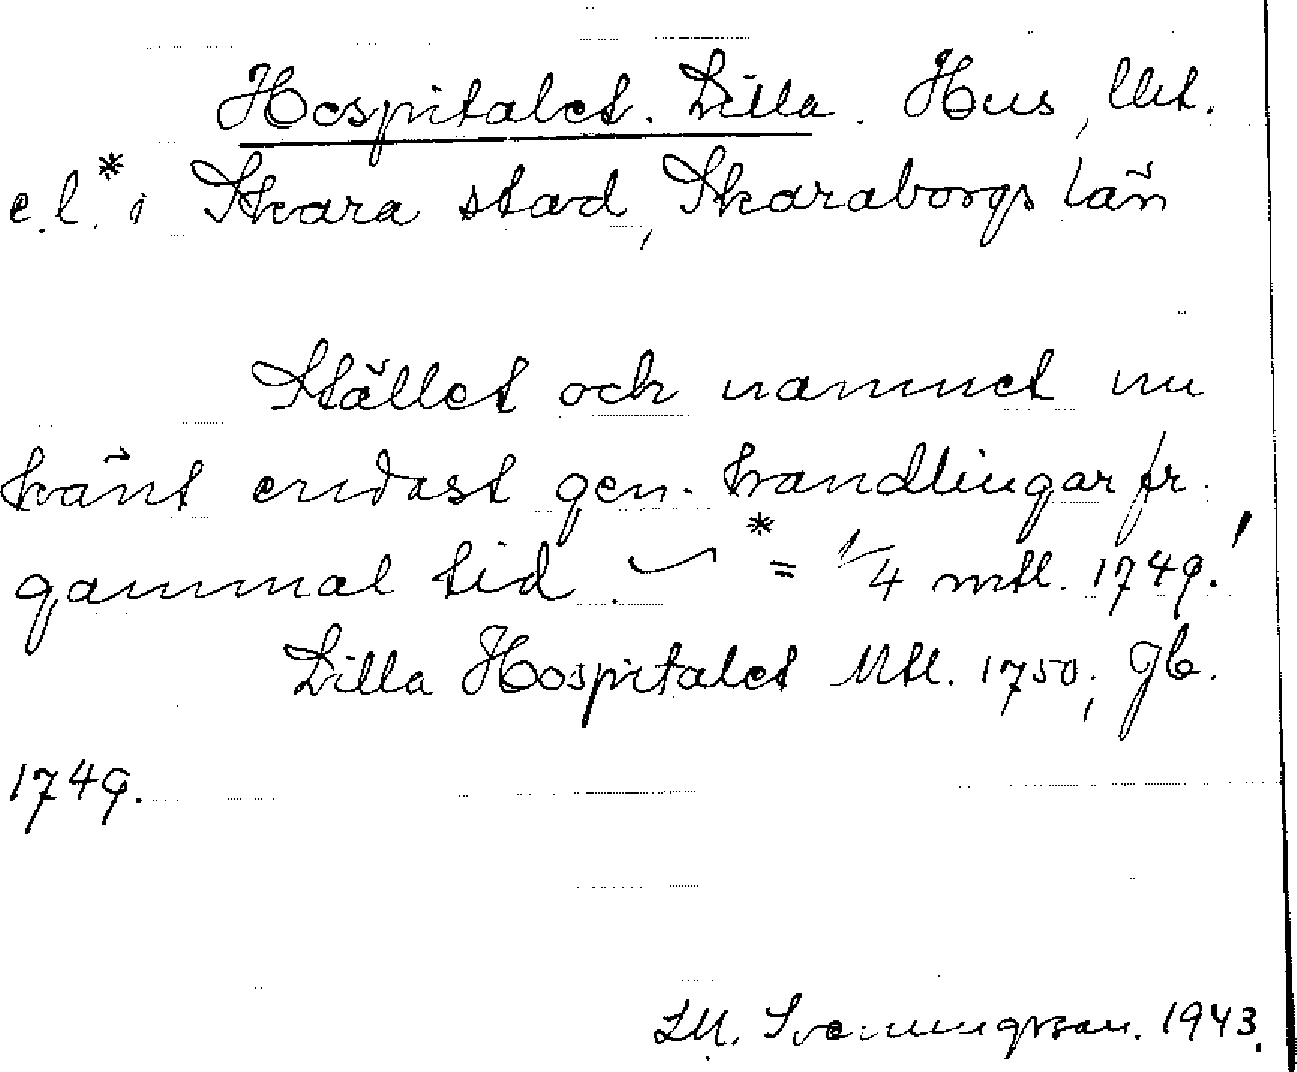 Hospitalet. Lilla. Hus, Utt.
e.l.* i Skara stad, Skaraborgs län
Stället och namnet nu
känt endast gen. handlingar fr.
gammal tid. — * = 1/4 mtl. 1749!
Lilla Hospitalet Mtl. 1750; Jb.
1749.
LM. Svenningsson. 1943.